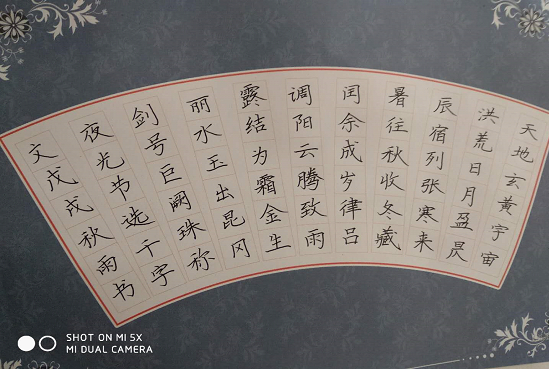 天地玄黄宇宙
洪荒日月盈昃
辰宿列张寒来
暑往秋收冬藏
闰余成岁律吕
调阳云腾致雨
露结为霜金生
丽水玉出昆冈
剑号巨阙珠称
夜光节选千字
文戊戌秋雨书
SHOT ON MI 5X
MI DUAL CAMERA